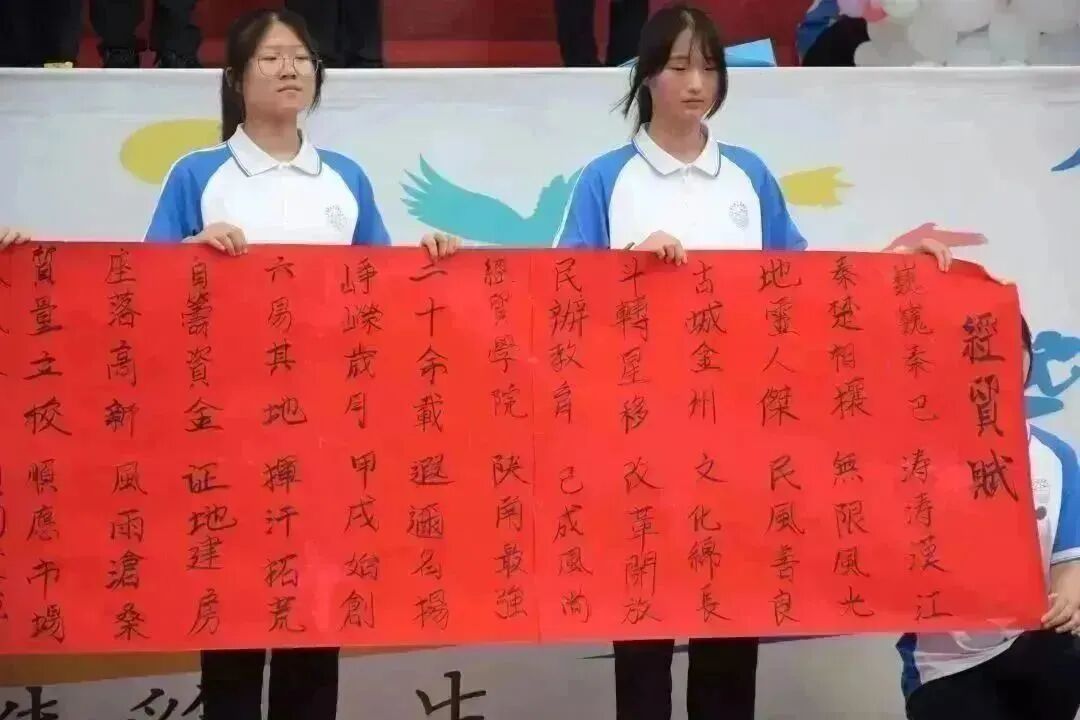 經貿賦
巍巍秦巴 涛涛漢江
秦楚相攘 無限風光
地靈人傑 民風善良
古城金州 文化綿長
斗轉星移 改革開放
民辦教育 已成風尚
經貿學院 陝南最強
二十余載 遐邇名揚
崢嶸歲月 甲戌始創
六易其地 揮汗拓荒
自籌資金 证地建房
座落高新 風雨滄桑
質量立校 順應市場